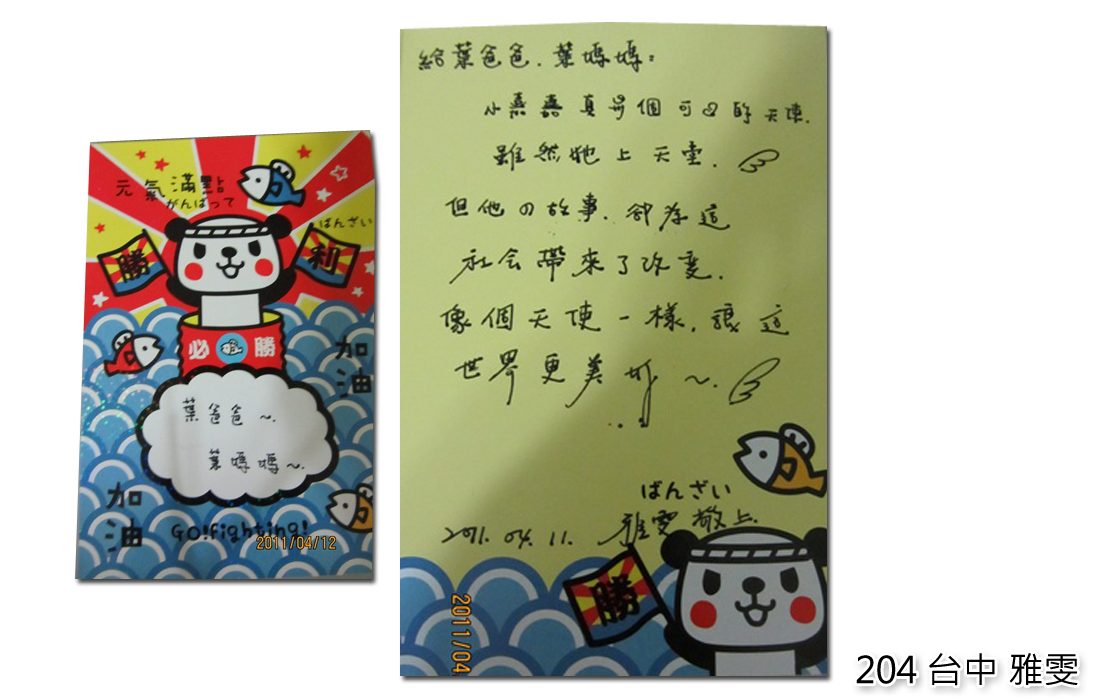 元氣滿點
がんばって
ばんざい
勝
利
必 勝
加油
葉爸爸~.
葉媽媽~.
加油
GO!fighting!
2011/04/12
給葉爸爸.葉媽媽:
小嘉嘉真是個可愛的天使.
雖然她上天堂.
但他の故事.卻為這
社会帶來了改變.
像個天使一樣,讓這
世界更美好~.
ばんざい
2011.04.11. 雅雯敬上.
勝
2011/04
204 台中 雅雯